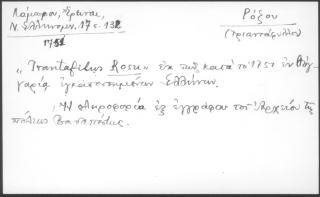 Λάμπρου, Ἔρευναι,
Ν. Ἑλληνομν. 17 σ. 132
1751
Ρόζου
(Τριαντάφυλλος)
„Trantafilus Rosu“ ἐκ τῶν κατὰ τὸ 1751 ἐν Οὐγ
γαρίᾳ ἐγκατεστημένων Ἑλλήνων.
Ἡ πληροφορία ἐξ ἐγγράφου τοῦ Ἀρχείου τῆς
πόλεως Βουδαπέστης.